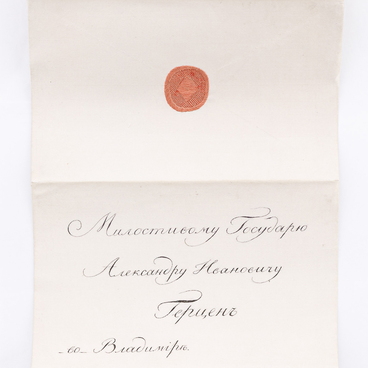 Милостивому Государю
Александру Ивановичу
Герценъ
во Владимірѣ.